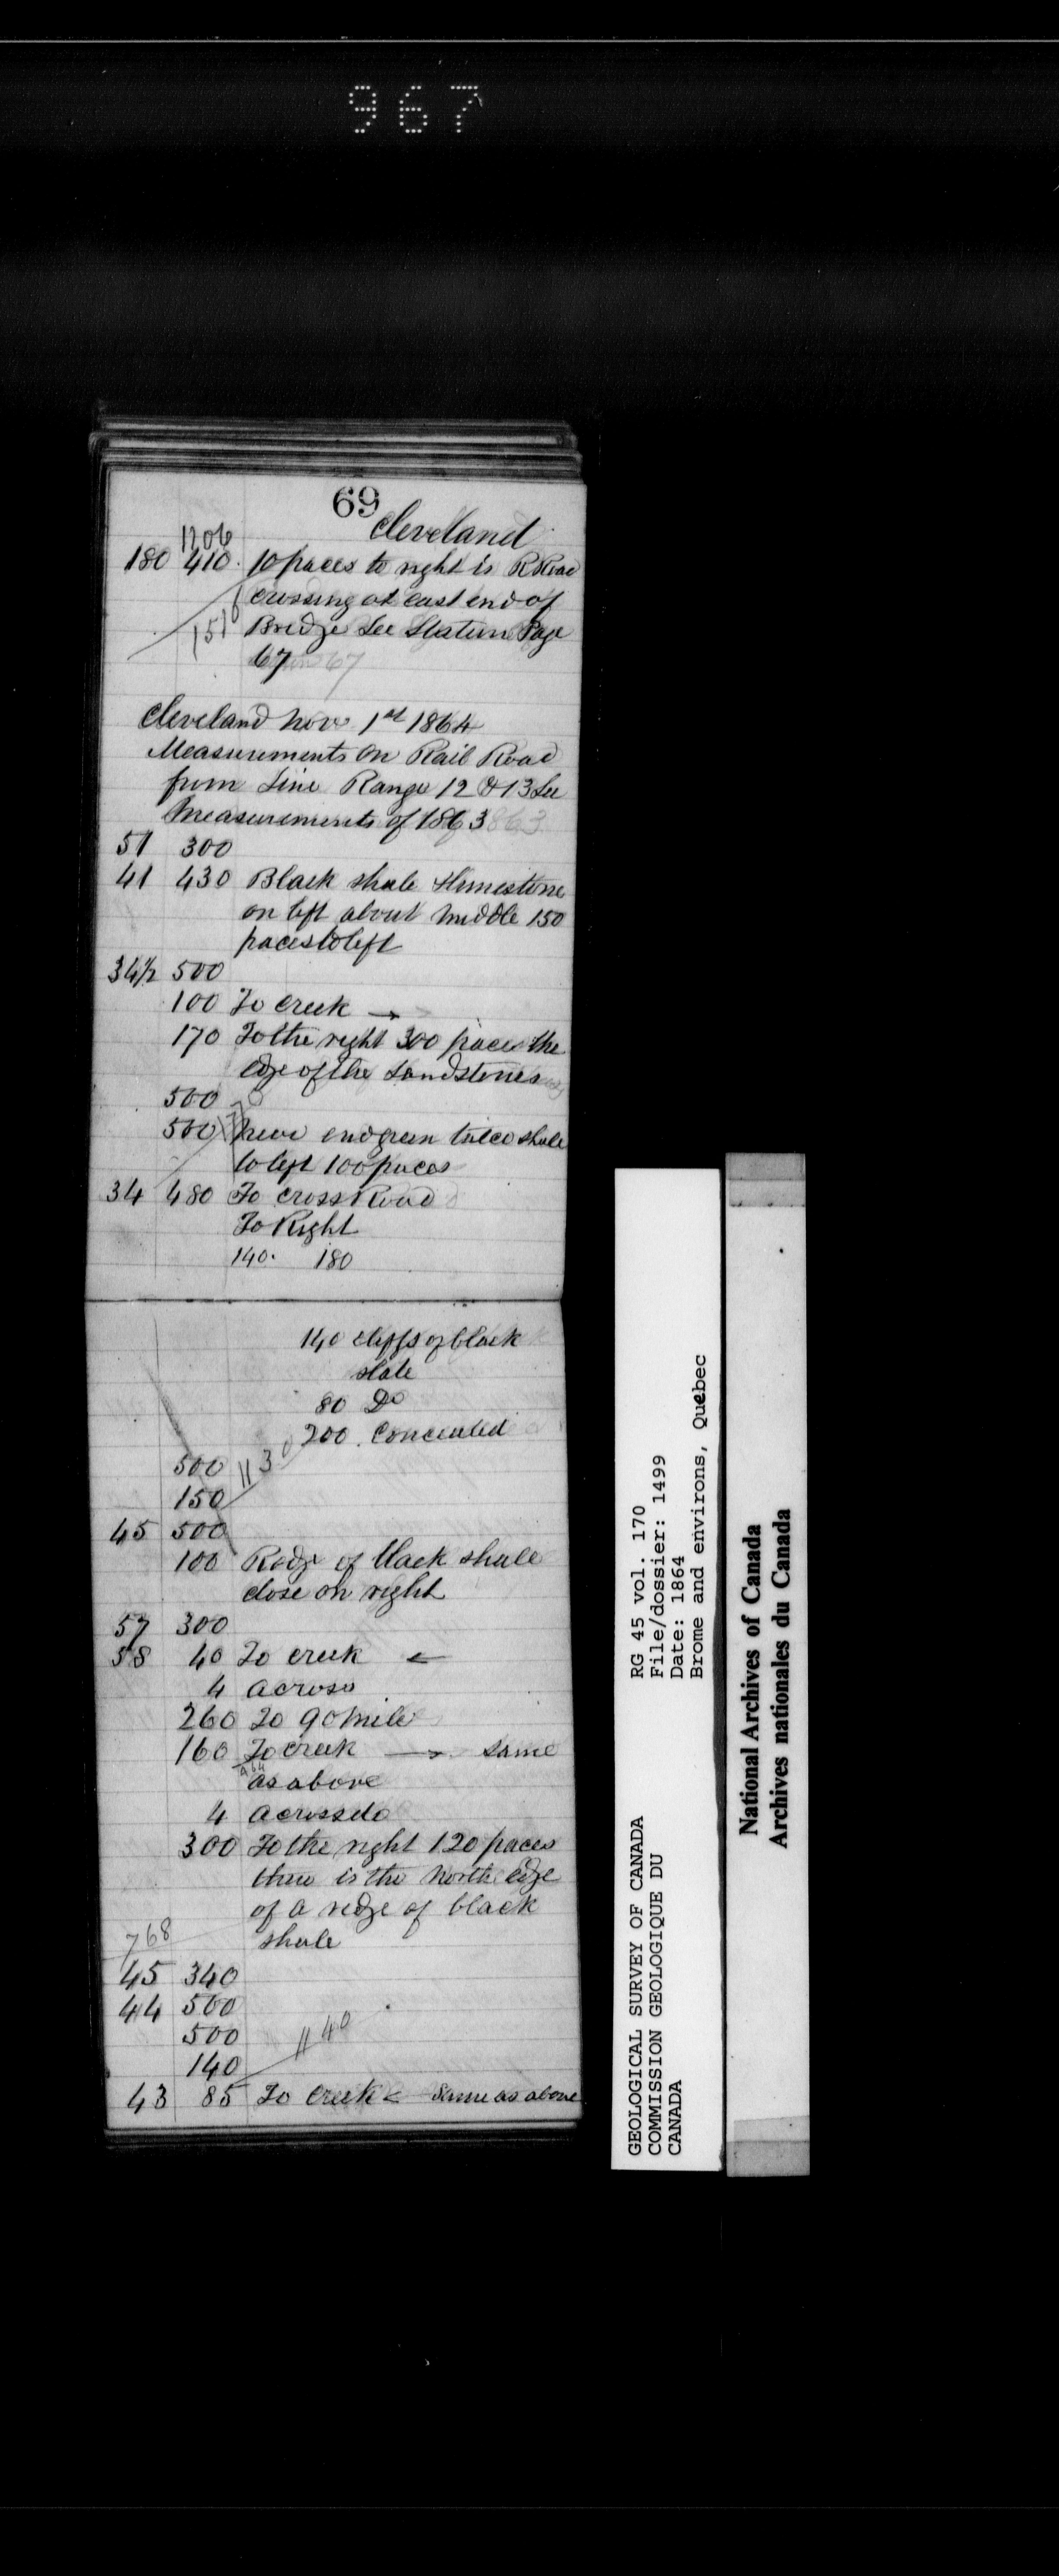 967
69
Cleveland
1206
180 410 10 paces to right is R Road
crossing at east end of
Bridge See Station Page
67
Cleveland Nov 1st 1864
Measurements on Rail Road
from Line Range 12 & 13 See
Measurements of 1863
51 300
41 430 Black shale & limestone
on left about middle 150
paces to left
34½ 500
100 To creek →
170 To the right 300 paces the
edge of the sandstones
500
500 green talco shale
to left 100 paces
34 480 To cross Road
To Right
140. 180
140 cliffs of black
slate
80 Do
200 Concealed
500 1130
150
45 500
100 Ridge of black shale
close on right
57 300
58 40 To creek ←
4 across
260 To 90 mile
160 To creek → same
as above
4 across do
300 To the right 120 paces
there is the North edge
of a ridge of black
768 shale
45 340
44 500
500 1140
140
43 85 To Creek ← same as above
GEOLOGICAL SURVEY OF CANADA
COMMISSION GEOLOGIQUE DU
CANADA
RG 45 vol. 170
File/dossier: 1499
Date: 1864
Brome and environs, Quebec
National Archives of Canada
Archives nationales du Canada